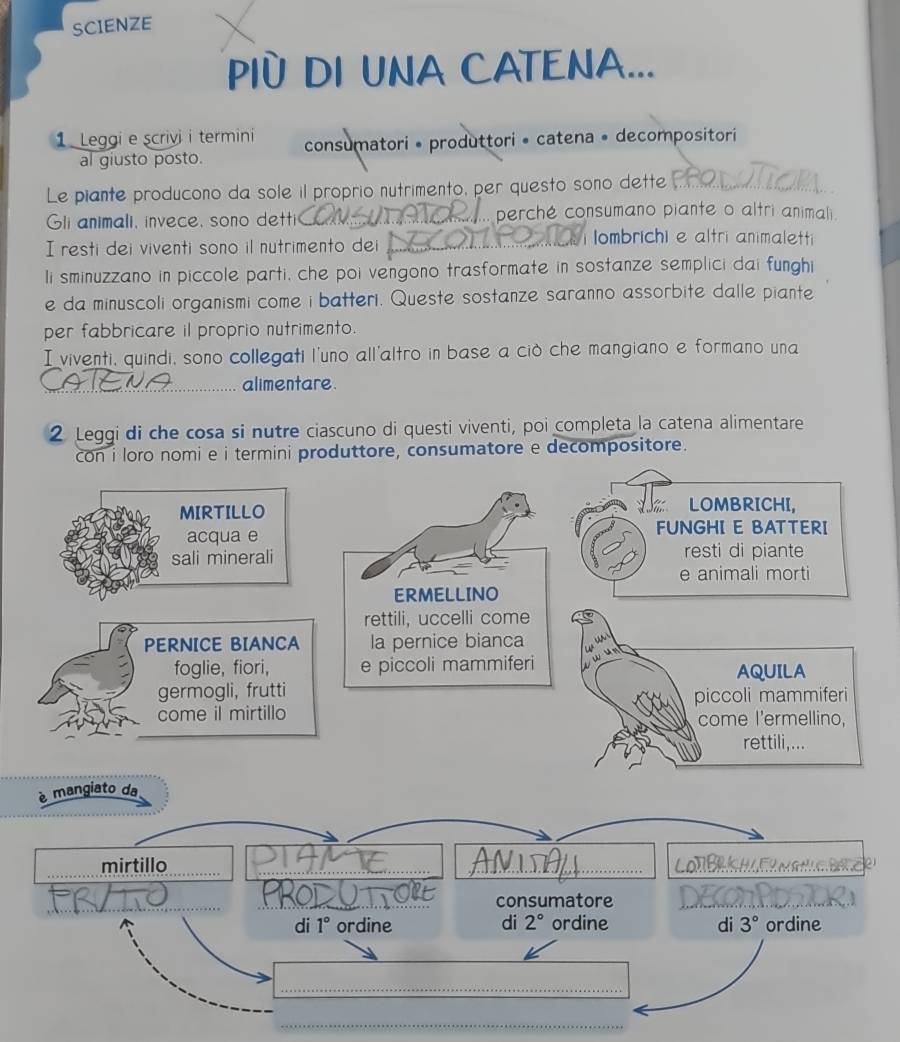 SCIENZE
PIÙ DI UNA CATENA...
1 Leggi e scrivi i termini
al giusto posto.
consumatori • produttori • catena • decompositori
Le piante producono da sole il proprio nutrimento, per questo sono dette PRODUTTORI
Gli animali, invece, sono detti CONSUMATORI perché consumano piante o altri animali.
I resti dei viventi sono il nutrimento dei DECOMPOSITORI i lombrichi e altri animaletti
li sminuzzano in piccole parti, che poi vengono trasformate in sostanze semplici dai funghi
e da minuscoli organismi come i batteri. Queste sostanze saranno assorbite dalle piante
per fabbricare il proprio nutrimento.
I viventi, quindi, sono collegati l'uno all'altro in base a ciò che mangiano e formano una
CATENA alimentare.
2 Leggi di che cosa si nutre ciascuno di questi viventi, poi completa la catena alimentare
con i loro nomi e i termini produttore, consumatore e decompositore.
MIRTILLO
acqua e
sali minerali
ERMELLINO
rettili, uccelli come
la pernice bianca
e piccoli mammiferi
LOMBRICHI,
FUNGHI E BATTERI
resti di piante
e animali morti
PERNICE BIANCA
foglie, fiori,
germogli, frutti
come il mirtillo
AQUILA
piccoli mammiferi
come l'ermellino,
rettili,...
è mangiato da
mirtillo
FRUTTO
PIANTE
PRODUTTORE
di 1° ordine
ANIMALI
consumatore
di 2° ordine
LOMBRICHI, FUNGHI E BATTERI
DECOMPOSITORI
di 3° ordine